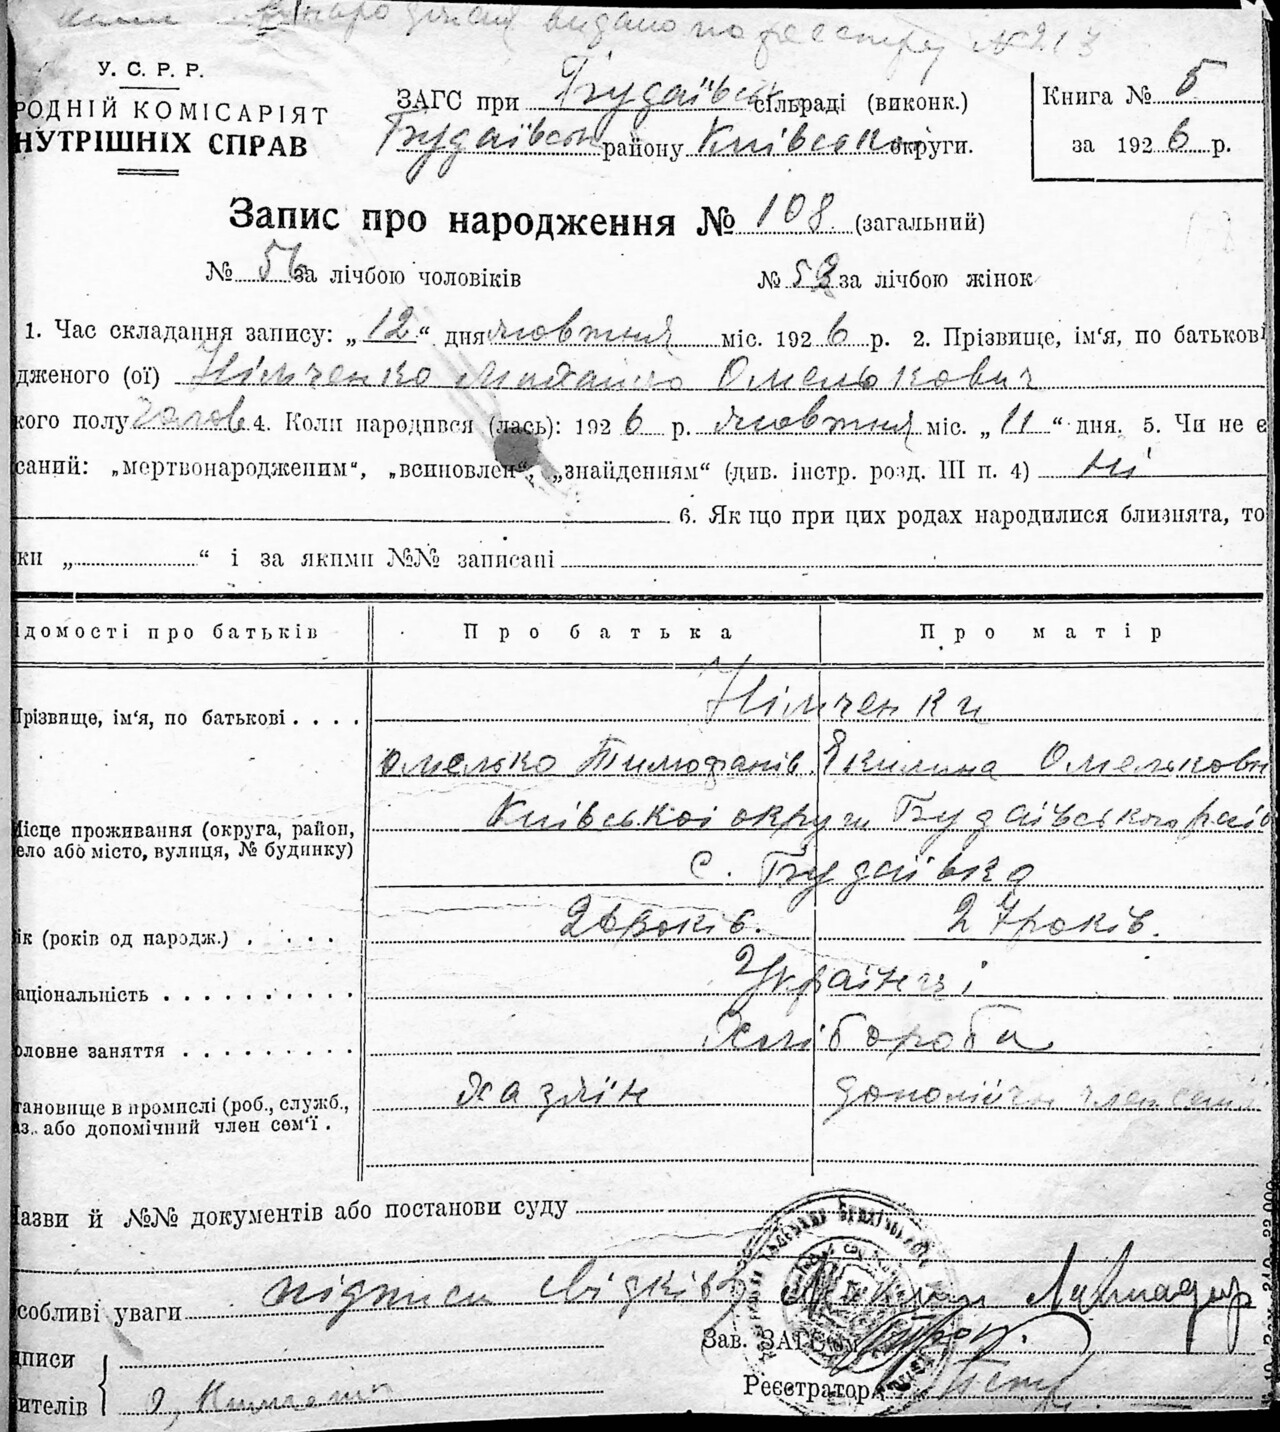 видано по реєстру № 213
У. С. Р. Р.
РОДНІЙ КОМІСАРІЯТ
НУТРІШНІХ СПРАВ
ЗАГС при Будаївськ сільраді (виконк.)
Будаївськ району Київськ округи.
Книга № 5
за 1926 р.
Запис про народження № 108 (загальний)
№ 56 за лічбою чоловіків № 52 за лічбою жінок
1. Час складання запису: „12“ дня жовтня міс. 1926 р. 2. Прізвище, ім‘я, по батькові
дженого (ої) Німченко Михайло Омелькович
кого полу чолов 4. Коли народився (лась): 1926 р. жовтня міс. „11“ дня. 5. Чи не є
саний: „мертвонародженим“, „всиновлен“, „знайденням“ (див. інстр. розд. III п. 4) ні
6. Якщо при цих родах народилися близнята, то
ки „ “ і за якими №№ записані
ідомості про батьків Про батька Про матір
Прізвище, ім‘я, по батькові . . . . Німченки
Омелько Тимофаїв. Якилина Омельковн
Місце проживання (округа, район, Київської округи Будаївського рай
ело або місто, вулиця, № будинку) с. Будаївка
ік (років од народж.) . . . . . років. 27 років.
аціональність . . . . . . . . . . Українці
оловне заняття . . . . . . . . . Хлібороби
тановище в промислі (роб., служб., Хазяїн допомічн член семї
аз. або допомічний член сем‘ї .
Назви й №№ документів або постанови суду
собливі уваги підписи свідків
Зав. ЗАГСом
дписи
ителів
Реєстратор